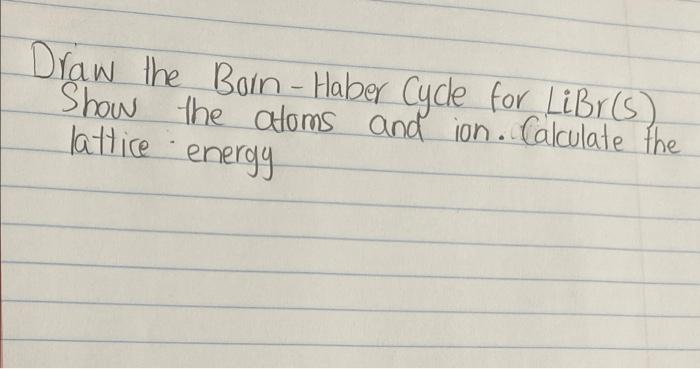 Draw the Born-Haber Cycle for LiBr(s)
Show the atoms and ion. Calculate the
lattice energy